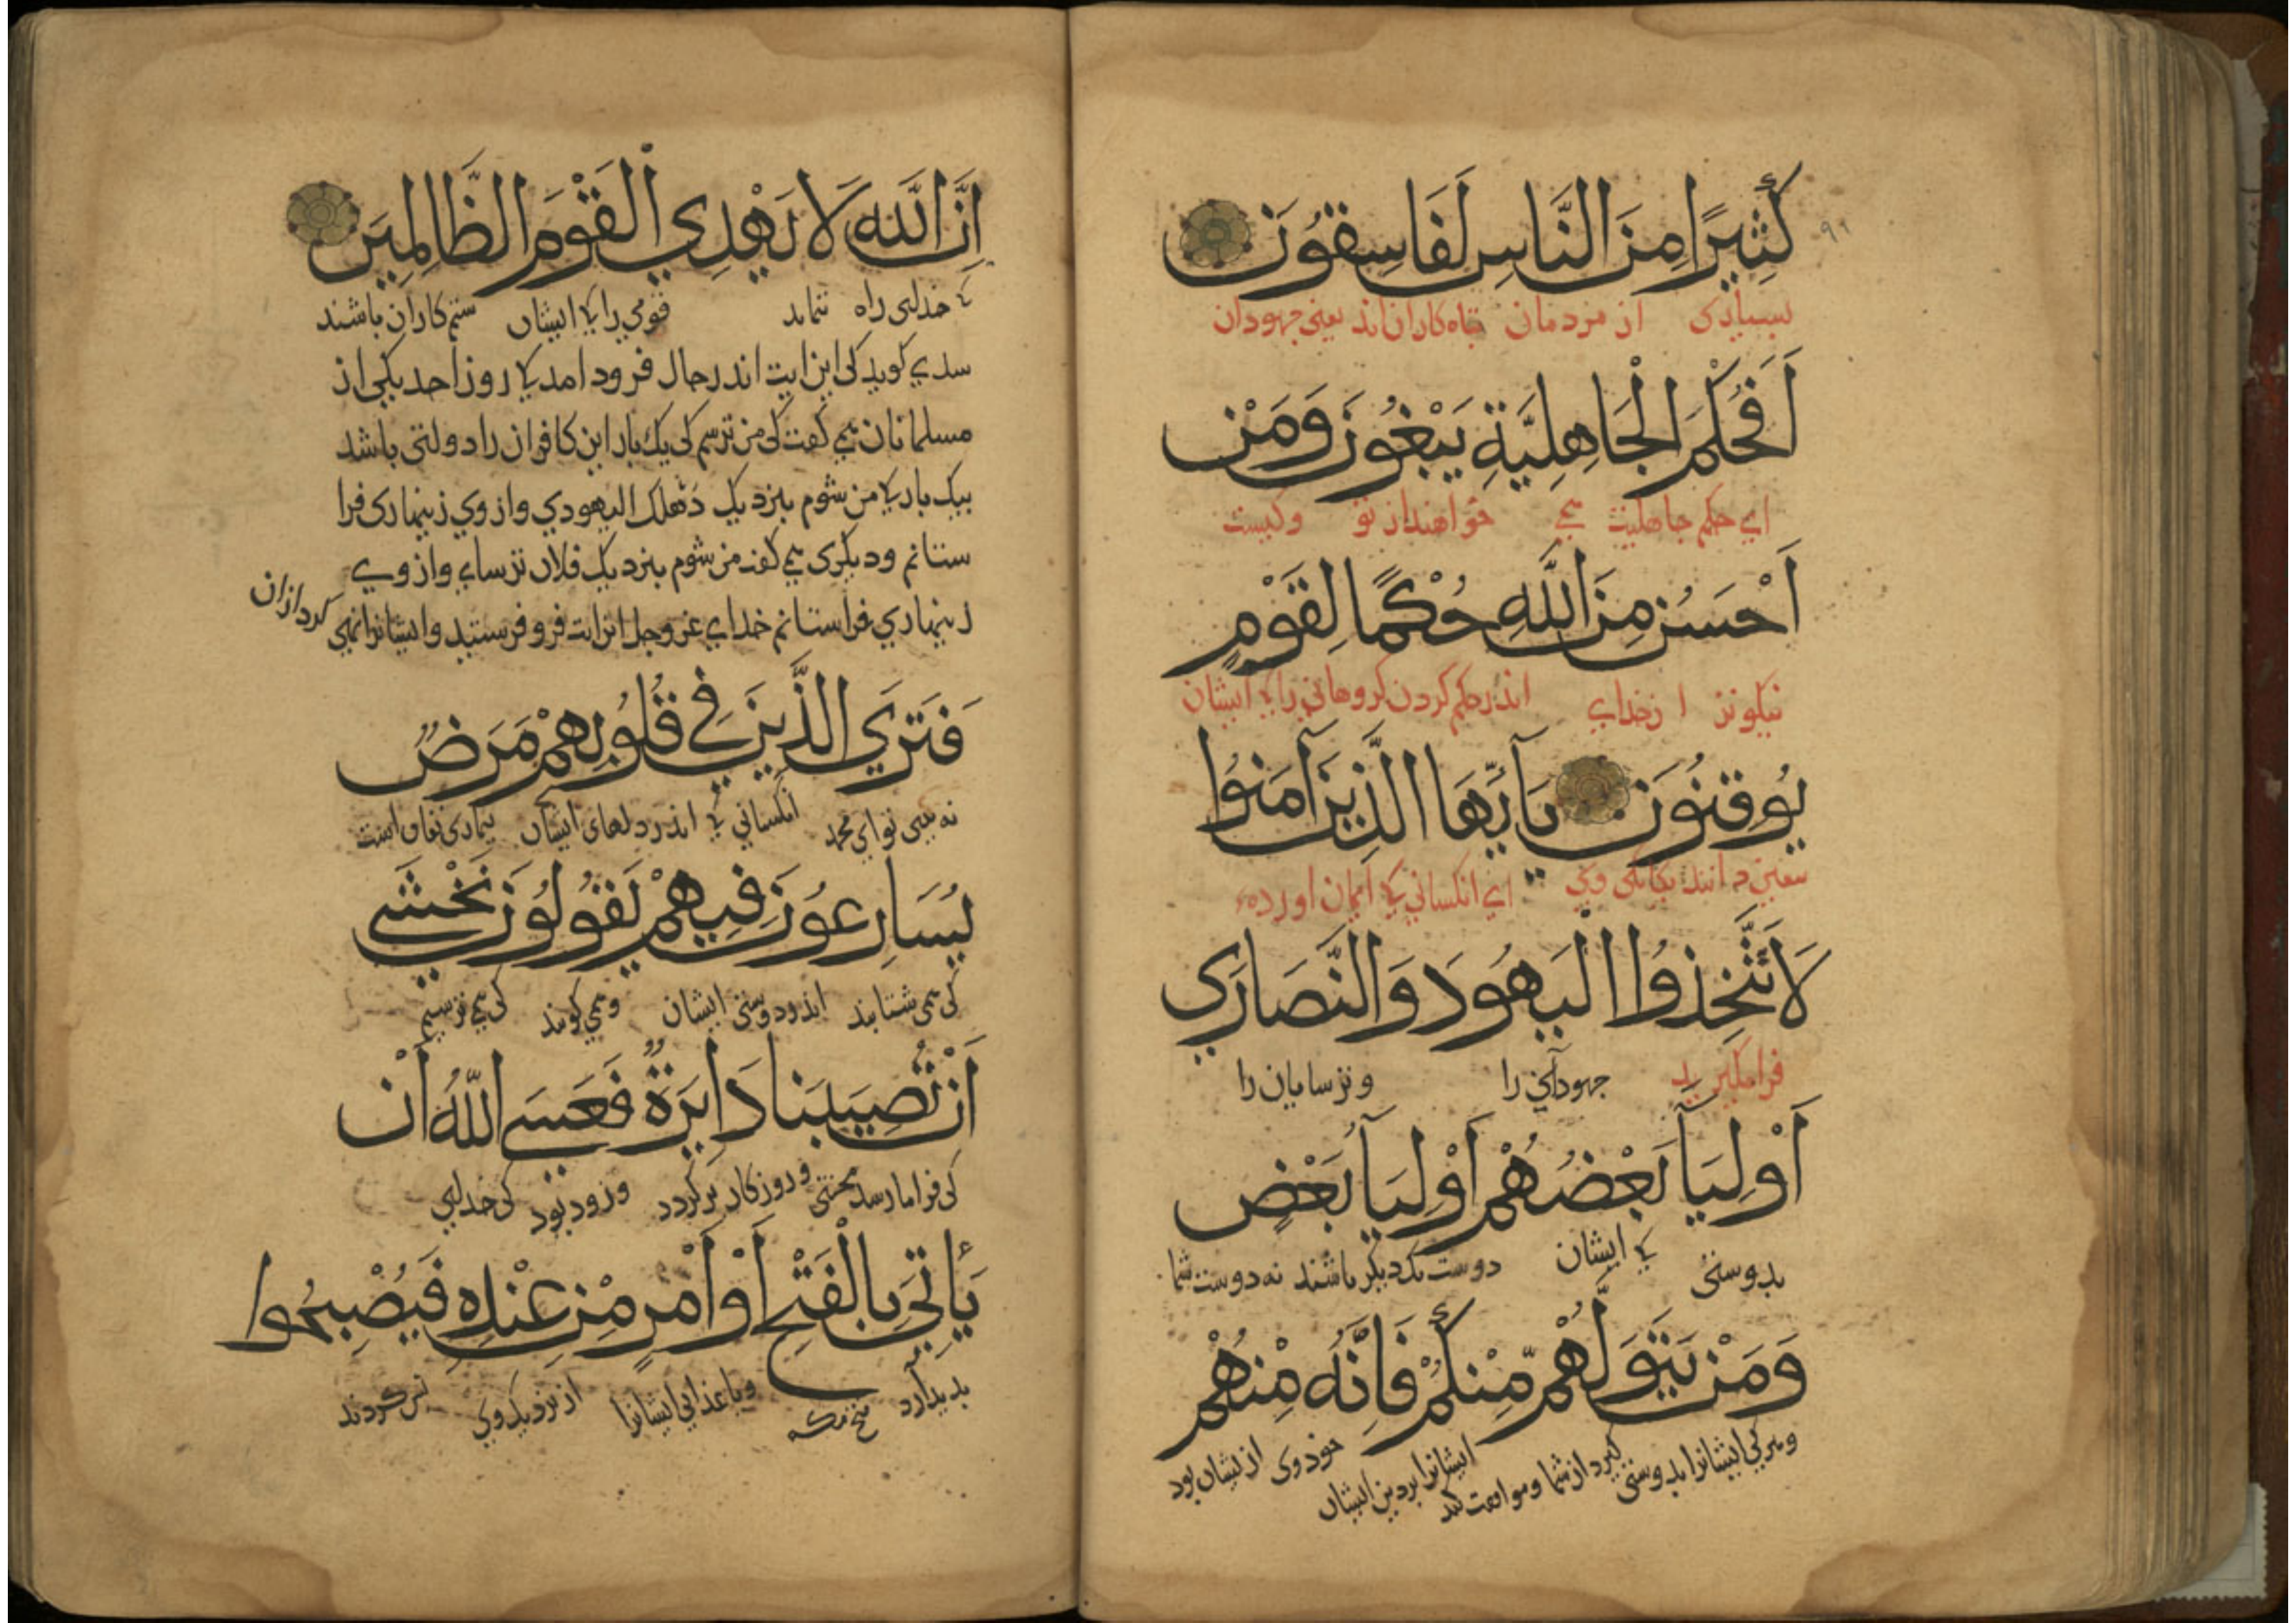 كَثِيرًا مِنَ النَّاسِ لَفَاسِقُونَ
۹۱
بسیاری از مردمان تباه کاران اند یعنی جهودان
اَفَحُكْمَ الْجَاهِلِيَّةِ يَبْغُونَ وَمَنْ
ای حکم جاهلیت می خواهند از تو و کیست
اَحْسَنُ مِنَ اللَّهِ حُكْمًا لِقَوْمٍ
نیکوتر از خدای اندر حکم کردن کروهانی را کی ایشان
يُوقِنُونَ يَآ اَيُّهَا الَّذِينَ آمَنُوا
بیقین دانند یکانکی وی ای انکسانی کی ایمان اورده
لَا تَتَّخِذُوا الْيَهُودَ وَالنَّصَارَي
فرا مکیرید جهودان را و ترسایان را
اَوْلِيَآ بَعْضُهُمْ اَوْلِيَآ بَعْضٍ
بدوستی کی ایشان دوست یکدیکر باشند نه دوست شما
وَمَنْ يَتَوَلَّهُمْ مِّنْكُمْ فَاِنَّهُ مِنْهُمْ
و هر کی ایشانرا بدوستی کیرد از شما و موافقت کند ایشانرا بر دین ایشان خود وی از ایشان بود
اِنَّ اللَّهَ لَا يَهْدِي الْقَوْمَ الظَّالِمِينَ
کی خدای راه ننماید قومی را کی ایشان ستم کاران باشند
سدي کوید کی این ایت اندر حال فرود امد کی روز احد یکی از
مسلمانان می کفت کی من ترسم کی یک بار این کافران را دولتی باشد
بیک بار کی من شوم بنزدیک دهلک الیهودي و از وي زینهاری فرا
ستانم و دیکری می کفت من شوم بنزدیک فلان ترسای و از وی
زینهاري فرا ستانم خدای عز و جل این ایت فرو فرستید و ایشانرا نهی کرد از ان
فَتَرَي الَّذِينَ فِي قُلُوبِهِمْ مَرَضٌ
نه بینی تو ای محمد انکسانی کی اندر دلهای ایشان بیماری نفاق است
يُسَارِعُونَ فِيهِمْ يَقُولُونَ نَخْشَي
کی می شتابند اندر دوستی ایشان و می کویند کی می ترسیم
اَنْ تُصِيبَنَا دَايِرَةٌ فَعَسَي اللَّهُ اَنْ
کی فرا ما رسد محنتی و روزکار بر کردد و زود بود کی خدای
يَأْتِيَ بِالْفَتْحِ اَوْ اَمْرٍ مِنْ عِنْدِهِ فَيُصْبِحُوا
پدید آرد فتح مکه و یا عذابی ایشانرا از نزدیک وی پس کردند